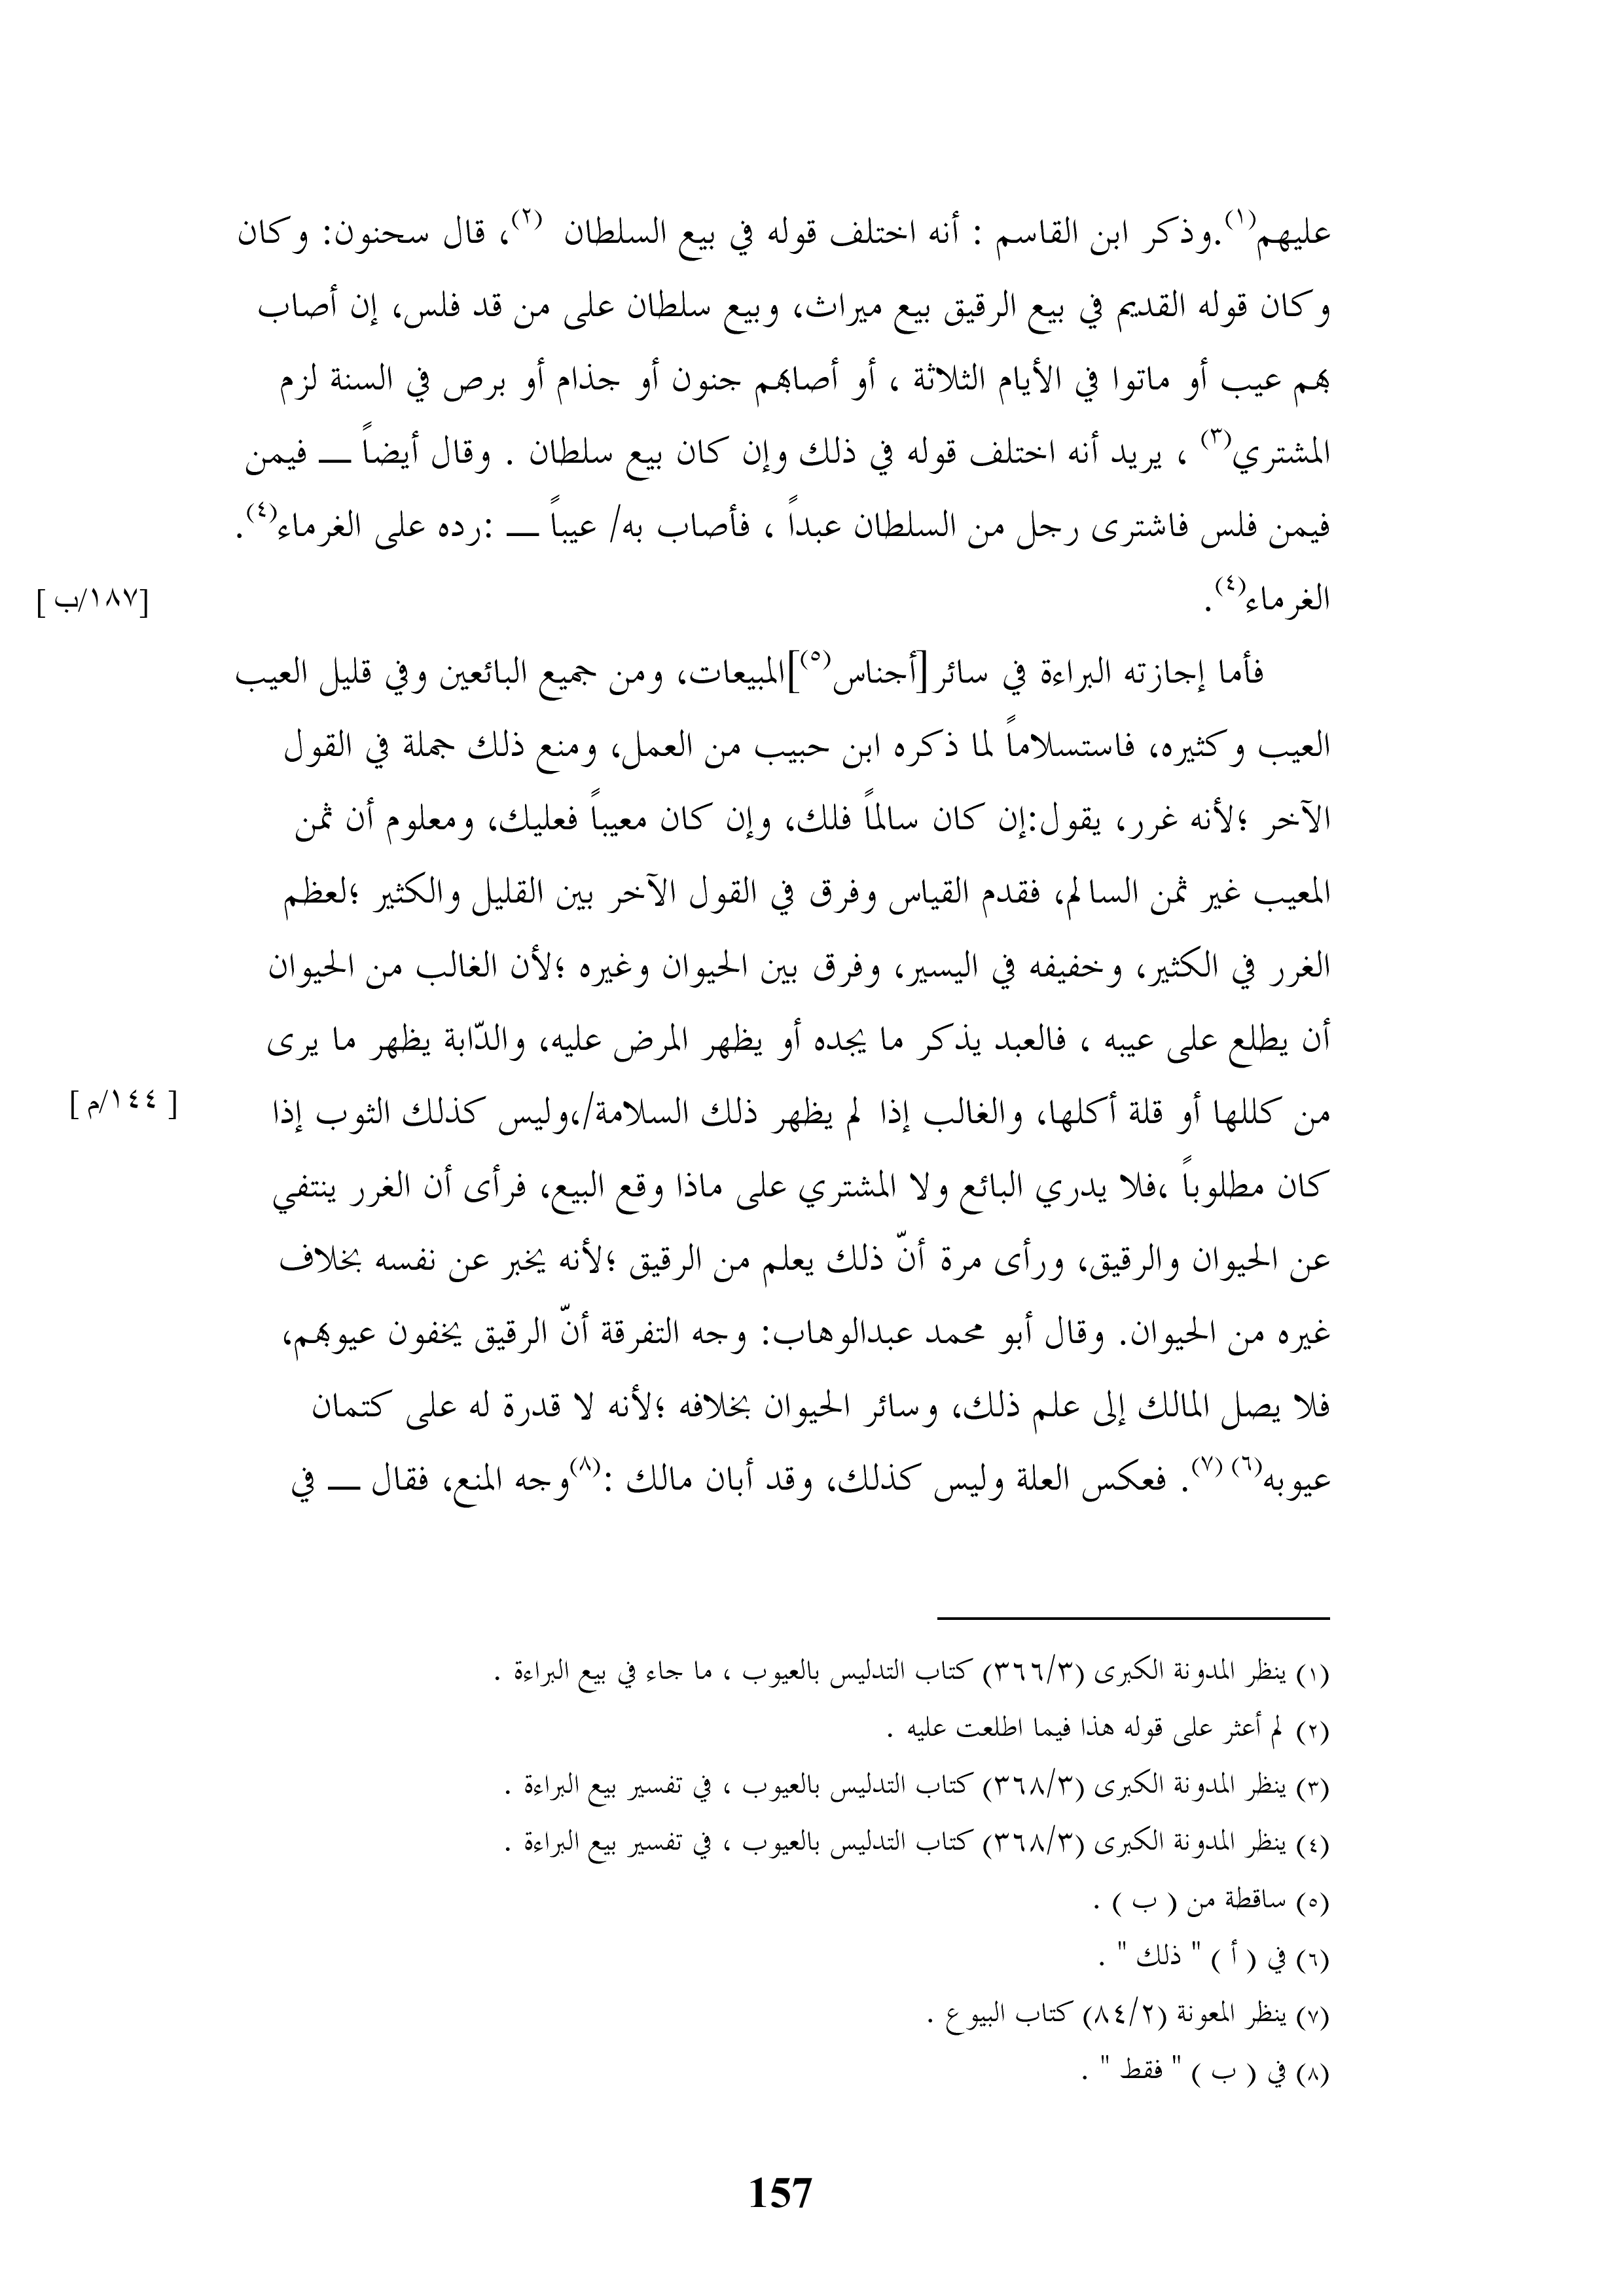 عليهم(١).وذكر ابن القاسم : أنه اختلف قوله في بيع السلطان (٢)، قال سحنون: وكان
وكان قوله القديم في بيع الرقيق بيع ميراث، وبيع سلطان على من قد فلس، إن أصاب
بهم عيب أو ماتوا في الأيام الثلاثة ، أو أصابهم جنون أو جذام أو برص في السنة لزم
المشتري(٣) ، يريد أنه اختلف قوله في ذلك وإن كان بيع سلطان . وقال أيضاً ــ فيمن
فيمن فلس فاشترى رجل من السلطان عبداً ، فأصاب به/ عيباً ــ :رده على الغرماء(٤).
الغرماء(٤).
[١٨٧/ب ]
فأما إجازته البراءة في سائر[أجناس(٥)]المبيعات، ومن جميع البائعين وفي قليل العيب
العيب وكثيره، فاستسلاماً لما ذكره ابن حبيب من العمل، ومنع ذلك جملة في القول
الآخر ؛لأنه غرر، يقول:إن كان سالماً فلك، وإن كان معيباً فعليك، ومعلوم أن ثمن
المعيب غير ثمن السالم، فقدم القياس وفرق في القول الآخر بين القليل والكثير ؛لعظم
الغرر في الكثير، وخفيفه في اليسير، وفرق بين الحيوان وغيره ؛لأن الغالب من الحيوان
أن يطلع على عيبه ، فالعبد يذكر ما يجده أو يظهر المرض عليه، والدّابة يظهر ما يرى
من كللها أو قلة أكلها، والغالب إذا لم يظهر ذلك السلامة/،وليس كذلك الثوب إذا
[ ١٤٤/م ]
كان مطلوباً ،فلا يدري البائع ولا المشتري على ماذا وقع البيع، فرأى أن الغرر ينتفي
عن الحيوان والرقيق، ورأى مرة أنّ ذلك يعلم من الرقيق ؛لأنه يخبر عن نفسه بخلاف
غيره من الحيوان. وقال أبو محمد عبدالوهاب: وجه التفرقة أنّ الرقيق يخفون عيوبهم،
فلا يصل المالك إلى علم ذلك، وسائر الحيوان بخلافه ؛لأنه لا قدرة له على كتمان
عيوبه(٦) (٧). فعكس العلة وليس كذلك، وقد أبان مالك :(٨)وجه المنع، فقال ــ في
(١) ينظر المدونة الكبرى (٣٦٦/٣) كتاب التدليس بالعيوب ، ما جاء في بيع البراءة .
(٢) لم أعثر على قوله هذا فيما اطلعت عليه .
(٣) ينظر المدونة الكبرى (٣٦٨/٣) كتاب التدليس بالعيوب ، في تفسير بيع البراءة .
(٤) ينظر المدونة الكبرى (٣٦٨/٣) كتاب التدليس بالعيوب ، في تفسير بيع البراءة .
(٥) ساقطة من ( ب ) .
(٦) في ( أ ) " ذلك " .
(٧) ينظر المعونة (٨٤/٢) كتاب البيوع .
(٨) في ( ب ) " فقط " .
157